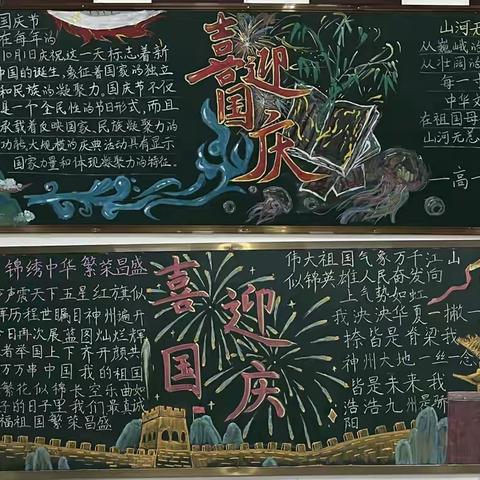 国庆节
在每年的
10月1日庆祝这一天标志着新
中国的诞生,象征着国家的独立
和民族的凝聚力。国庆节不仅
是一个全民性的节日形式,而且
承载着反映国家、民族凝聚力的
功能大规模的庆典活动具有显示
国家力量和体现凝聚力的特征。
喜迎国庆
山河无
从巍峨的
从壮阔的
每一寸
中华文
在祖国母
山河无恙
—高一
锦绣中华 繁荣昌盛
声震天下五星红方旗似
辉历程世瞩目神州遍开
今日再次展蓝图灿烂辉
着举国上下齐开颜共
万万串中国我的祖国
繁花似锦长空乐曲如
子的日子里我们衷真诚
福祖国繁荣昌盛
喜迎国庆
伟大祖国气象万千江山
似锦英雄人民奋发向
上气势如虹
我泱泱华夏一撇一
捺皆是脊梁我
神州大地一丝一念
皆是未来我
浩浩九州是骄
阳